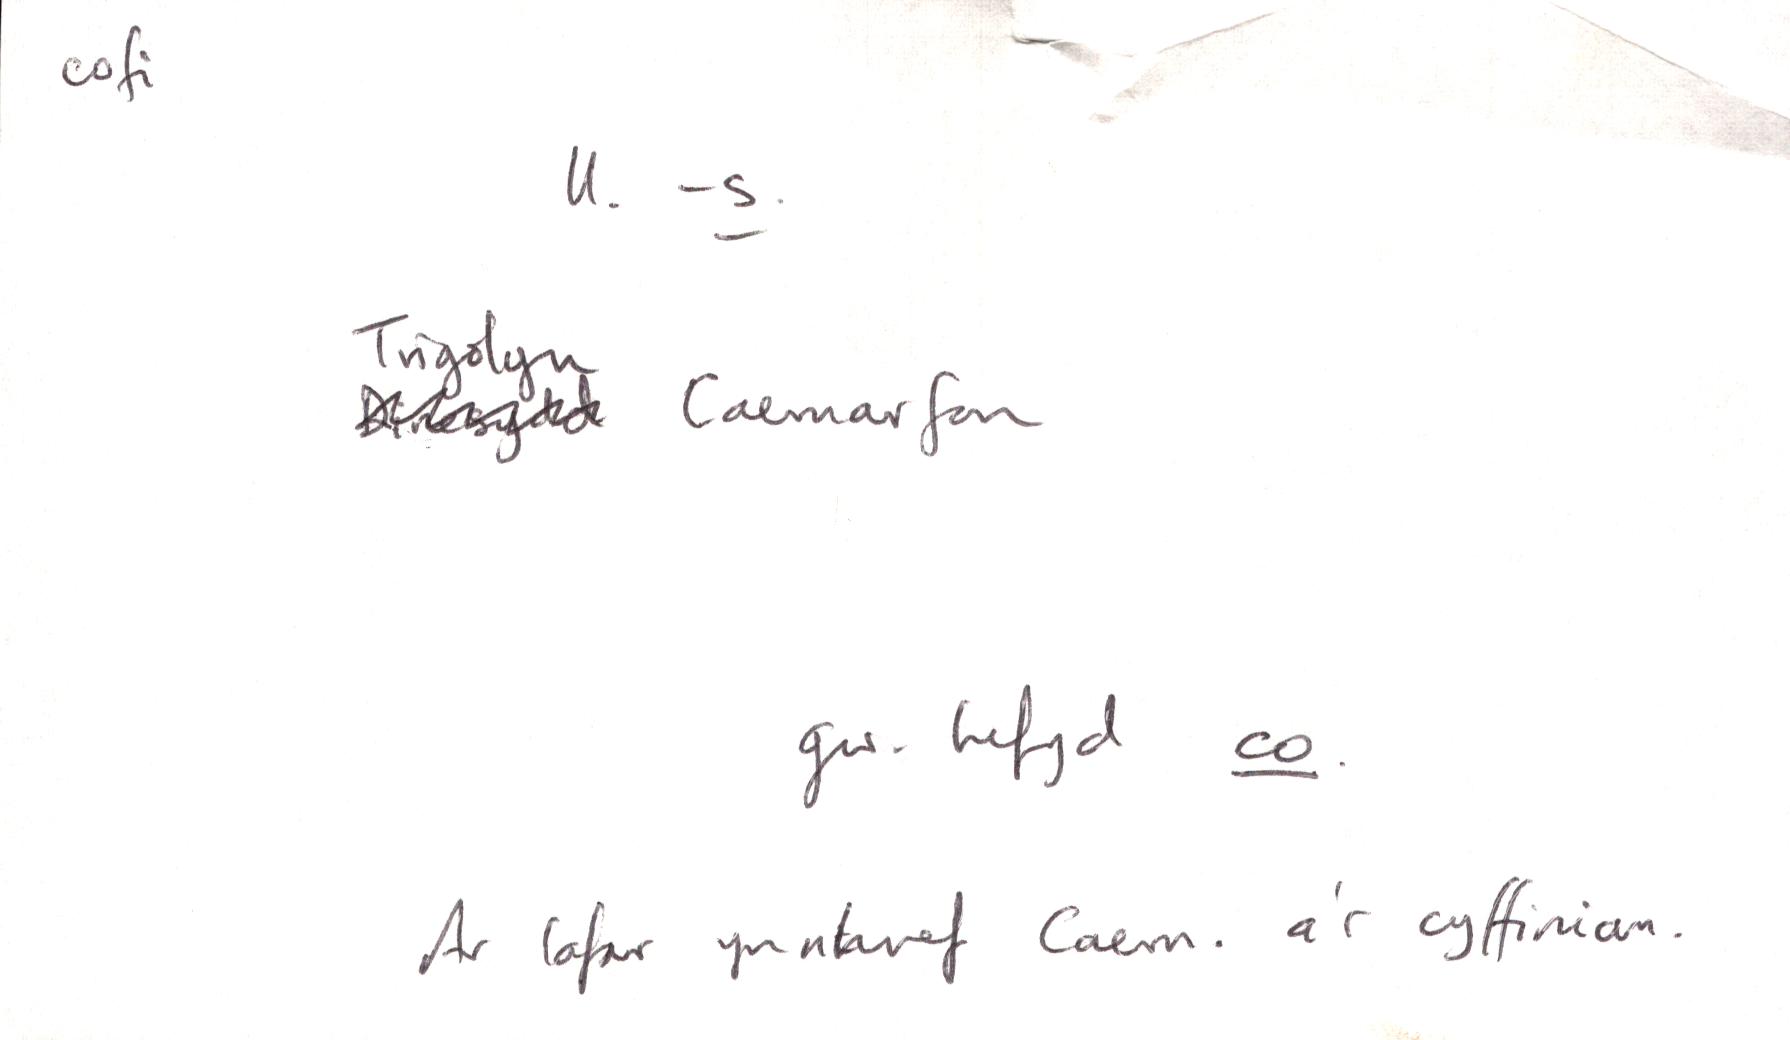 cofi
ll. -s.
Trigolyn
Dinesydd Caernarfon
gw. hefyd co.
Ar lafar yn nhref Caern. a'r cyffiniau.